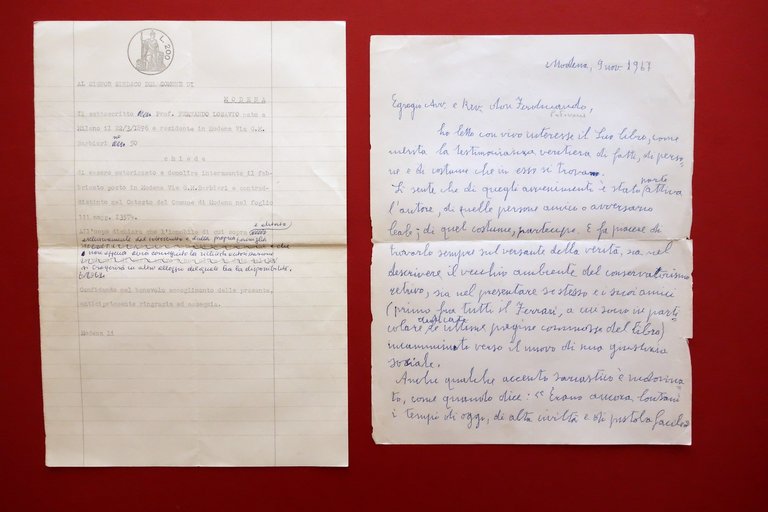 L. 200
AL SIGNOR SINDACO DEL COMUNE DI
MODENA
Il sottoscritto Prof. FERNANDO LOSAVIO nato a
Milano il 22/3/1896 e residente in Modena Via G.M.
Barbieri n° 50
chiede
di essere autorizzato a demolire interamente il fab-
bricato posto in Modena Via G.M.Barbieri e contrad-
distinto nel Catasto del Comune di Modena nel foglio
111 mapp. 13574.
All'uopo dichiara che l'immobile di cui sopra è abitato
esclusivamente dal sottoscritto e dalla propria famiglia
e che
non appena avrà conseguito la richiesta autorizzazione
si trasferirà in altro alloggio del quale ha la disponibilità.
Confidando nel benevolo accoglimento della presente,
anticipatamente ringrazia ed ossequia.
Modena li
Modena, 9 nov 1967
Egregio Avv. e Rev. don Ferdinando,
ho letto con vivo interesse il Suo libro, come
merita la testimonianza veritiera di fatti, di perso-
ne e di costume che in esso si trovano.
Si sente che di quegli avvenimenti è stato parte attiva
l'autore, di quelle persone amico o avversario
leale; di quel costume, partecipe. E fa piacere di
trovarlo sempre sul versante della verità, sia nel
descrivere il vecchio ambiente del conservatorismo
retrivo, sia nel presentare se stesso e i suoi amici
(primo fra tutti il Ferrari, a cui sono in parti-
colare dedicate le ultime pagine commosse del libro)
incamminato verso il nuovo di una giustizia
sociale.
Anche qualche accento sarcastico è indovina-
to, come quando dice: "Erano ancora lontani
i tempi di oggi, di alta civiltà e di pistola facile"